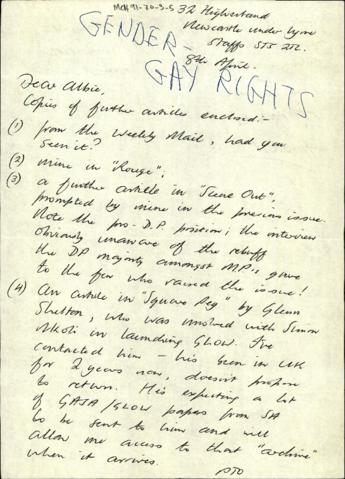 MCH 91-70-3-5
32 Higherland
Newcastle under Lyme
Staffs ST5 2TE.
8th April.
GENDER -
GAY RIGHTS
Dear Albie,
Copies of further articles enclosed:-
(1) from the Weekly Mail, had you
seen it?
(2) mine in "Rouge";
(3) a further article in "Scene Out",
prompted by mine in the previous issue.
Note the pro-D.P. position; the interview
obviously unaware of the rebuff
the DP majority amongst MP's gave
to the few who raised the issue!
(4) An article in "Square Peg" by Glenn
Shelton, who was involved with Simon
Nkoli in launching GLOW. I've
contacted him - his been in UK
for 2 years now, doesn't propose
to return. His expecting a lot
of GASA/GLOW papers from SA
to be sent to him and will
allow me access to that "archive"
when it arrives.
PTO